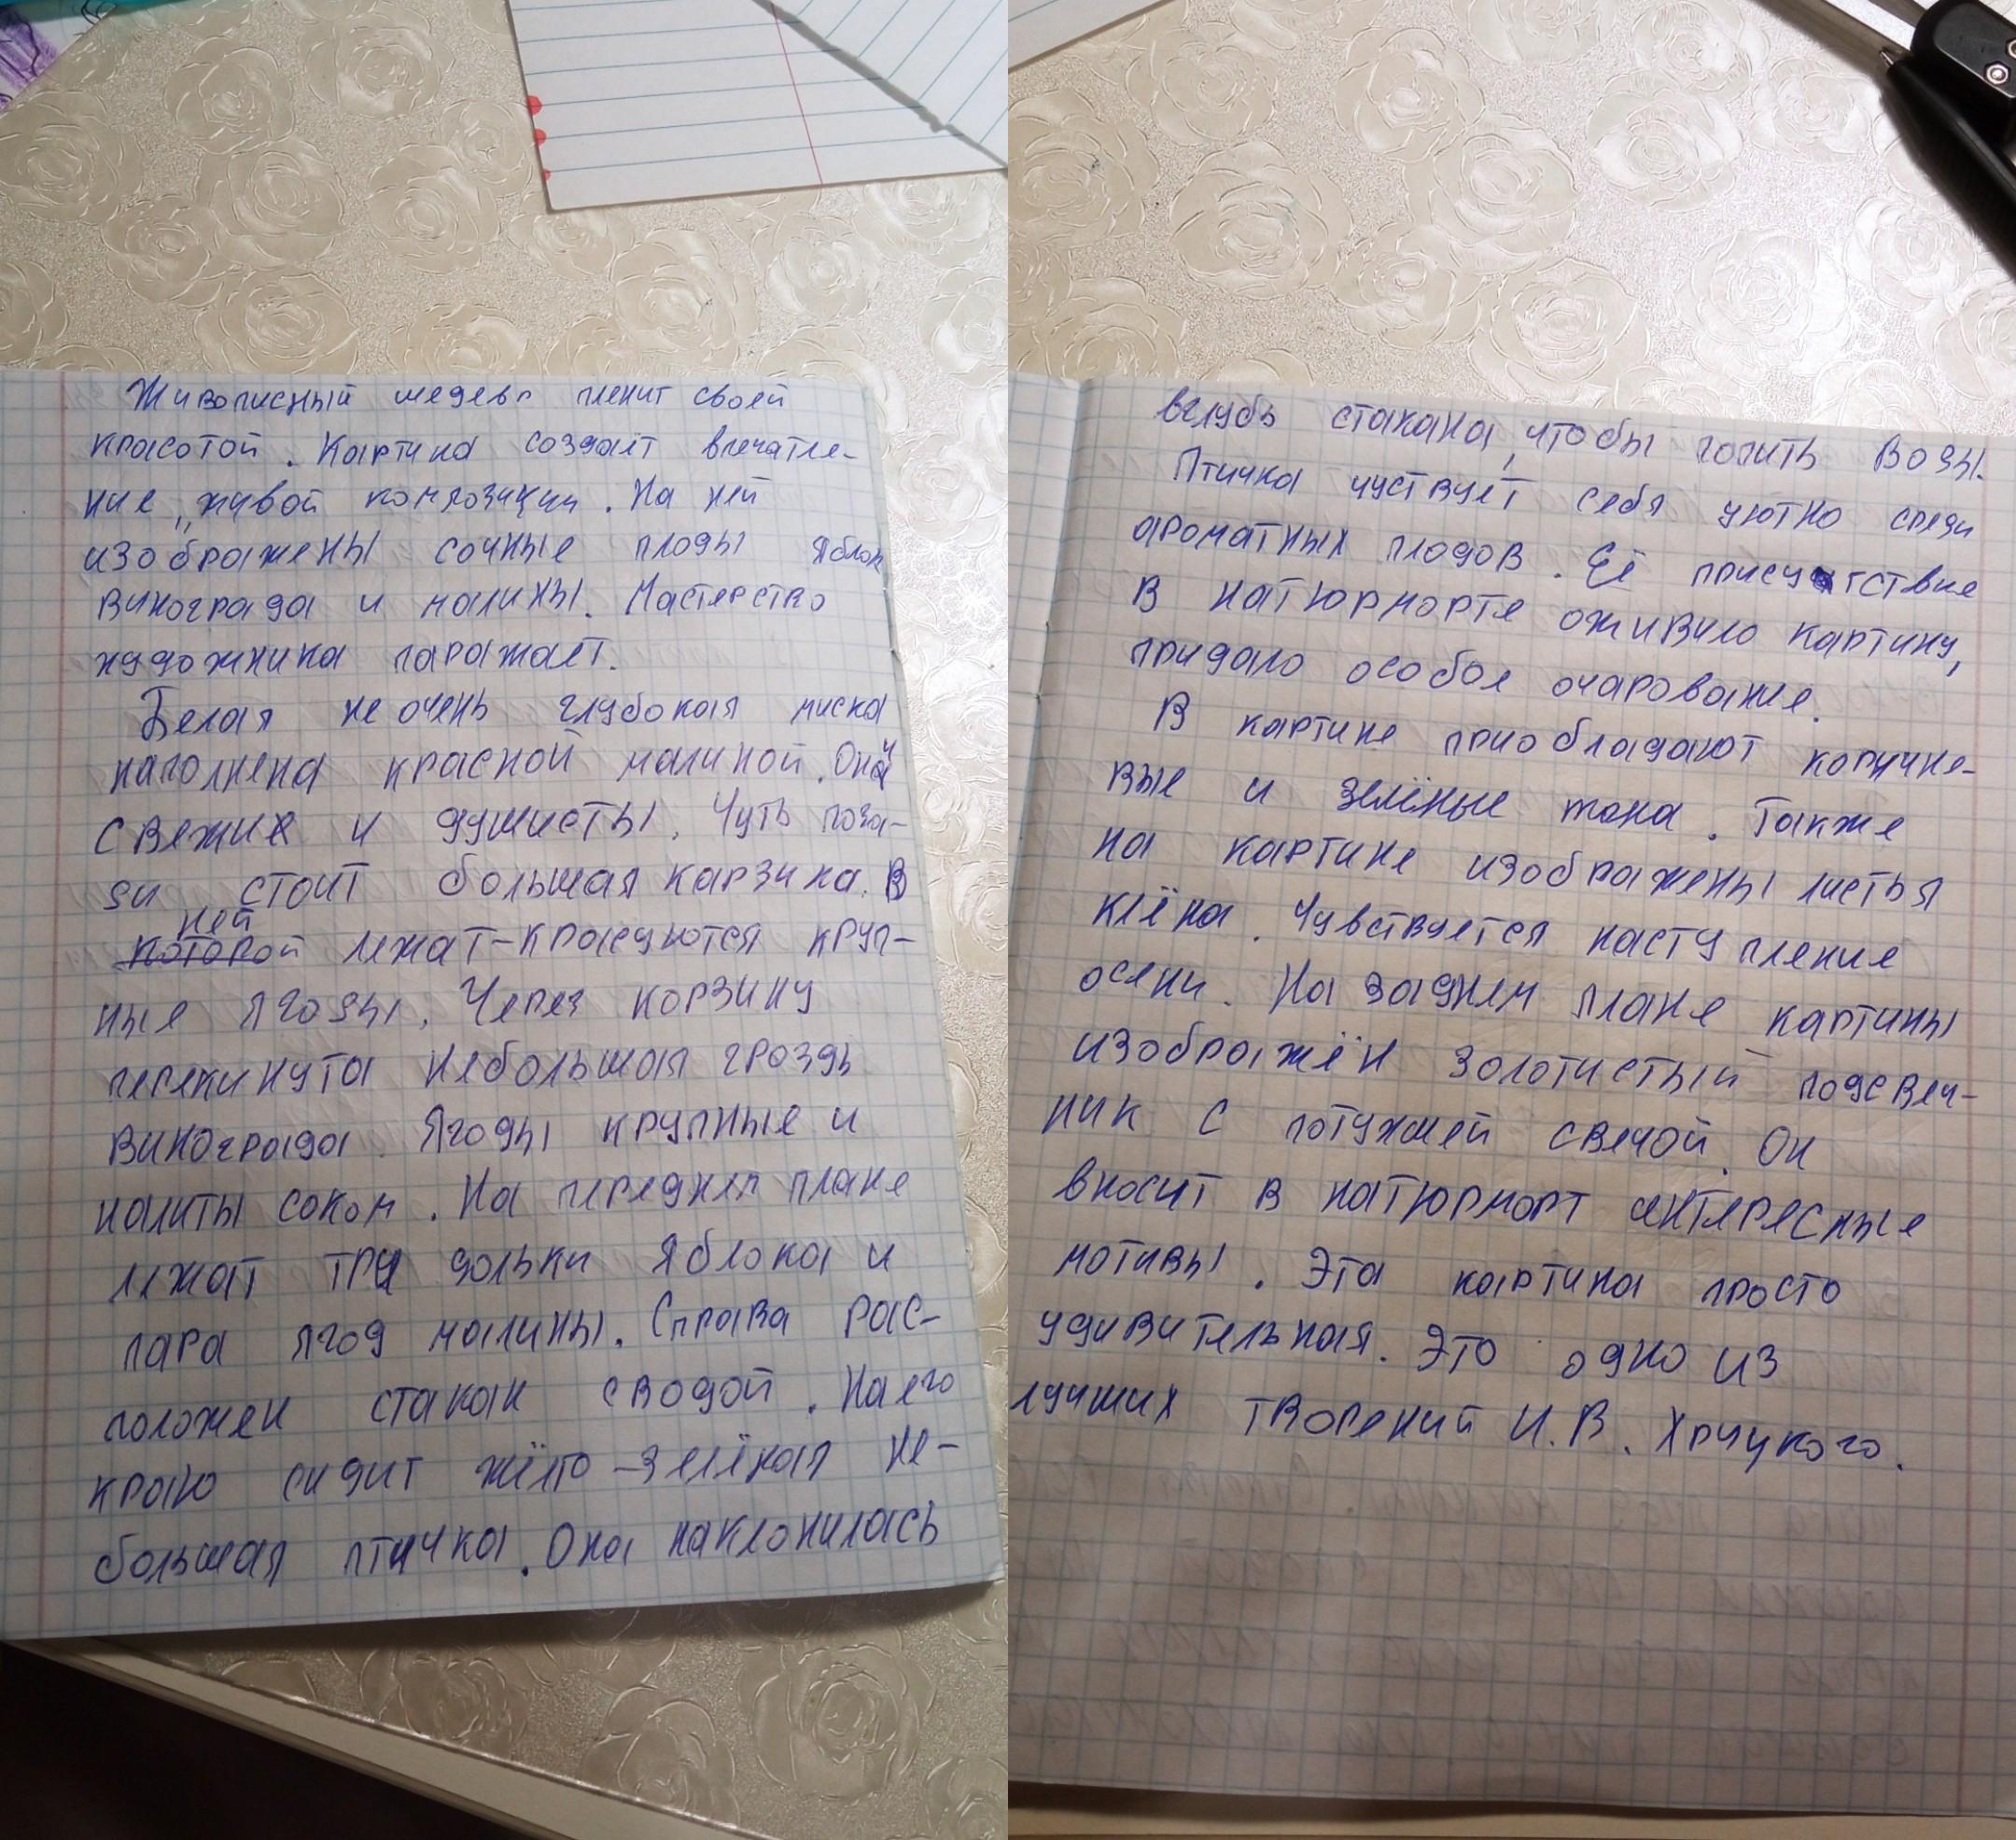 Живописный шедевр пленит своей
красотой. Картина создаёт впечатле-
ние „живой композиции. На ней
изображены сочные плоды яблок
винограда и малины. Мастерство
художника паражает.
Белая не очень глубокая миска
наполнена красной малиной. Они
свежие и душисты. Чуть поза-
ди стоит большая карзина. В
ней
которой лежат-красуются круп-
ные ягоды. Через корзину
перекинута небольшая гроздь
винограда. Ягоды крупные и
налиты соком. На переднем плане
лежат три дольки яблока и
пара ягод малины. Справа рас-
положен стакан с водой. На его
краю сидит жёлто-зелёная не-
большая птичка. Она наклонилась
вглубь стакана, чтобы попить воды.
Птичка чуствует себя уютно среди
ароматных плодов. Её присутствие
в натюрморте оживило картину,
придало особое очарование.
В картине приобладают коричне-
вые и зелёные тона. Также
на картине изображены листья
клёна. Чувствуется наступление
осени. На заднем плане картины
изображён золотистый подсвеч-
ник с потухшей свечой. Он
вносит в натюрморт интересные
мотивы. Эта картина просто
удивительная. Это одно из
лучших творений И.В. Хруцкого.